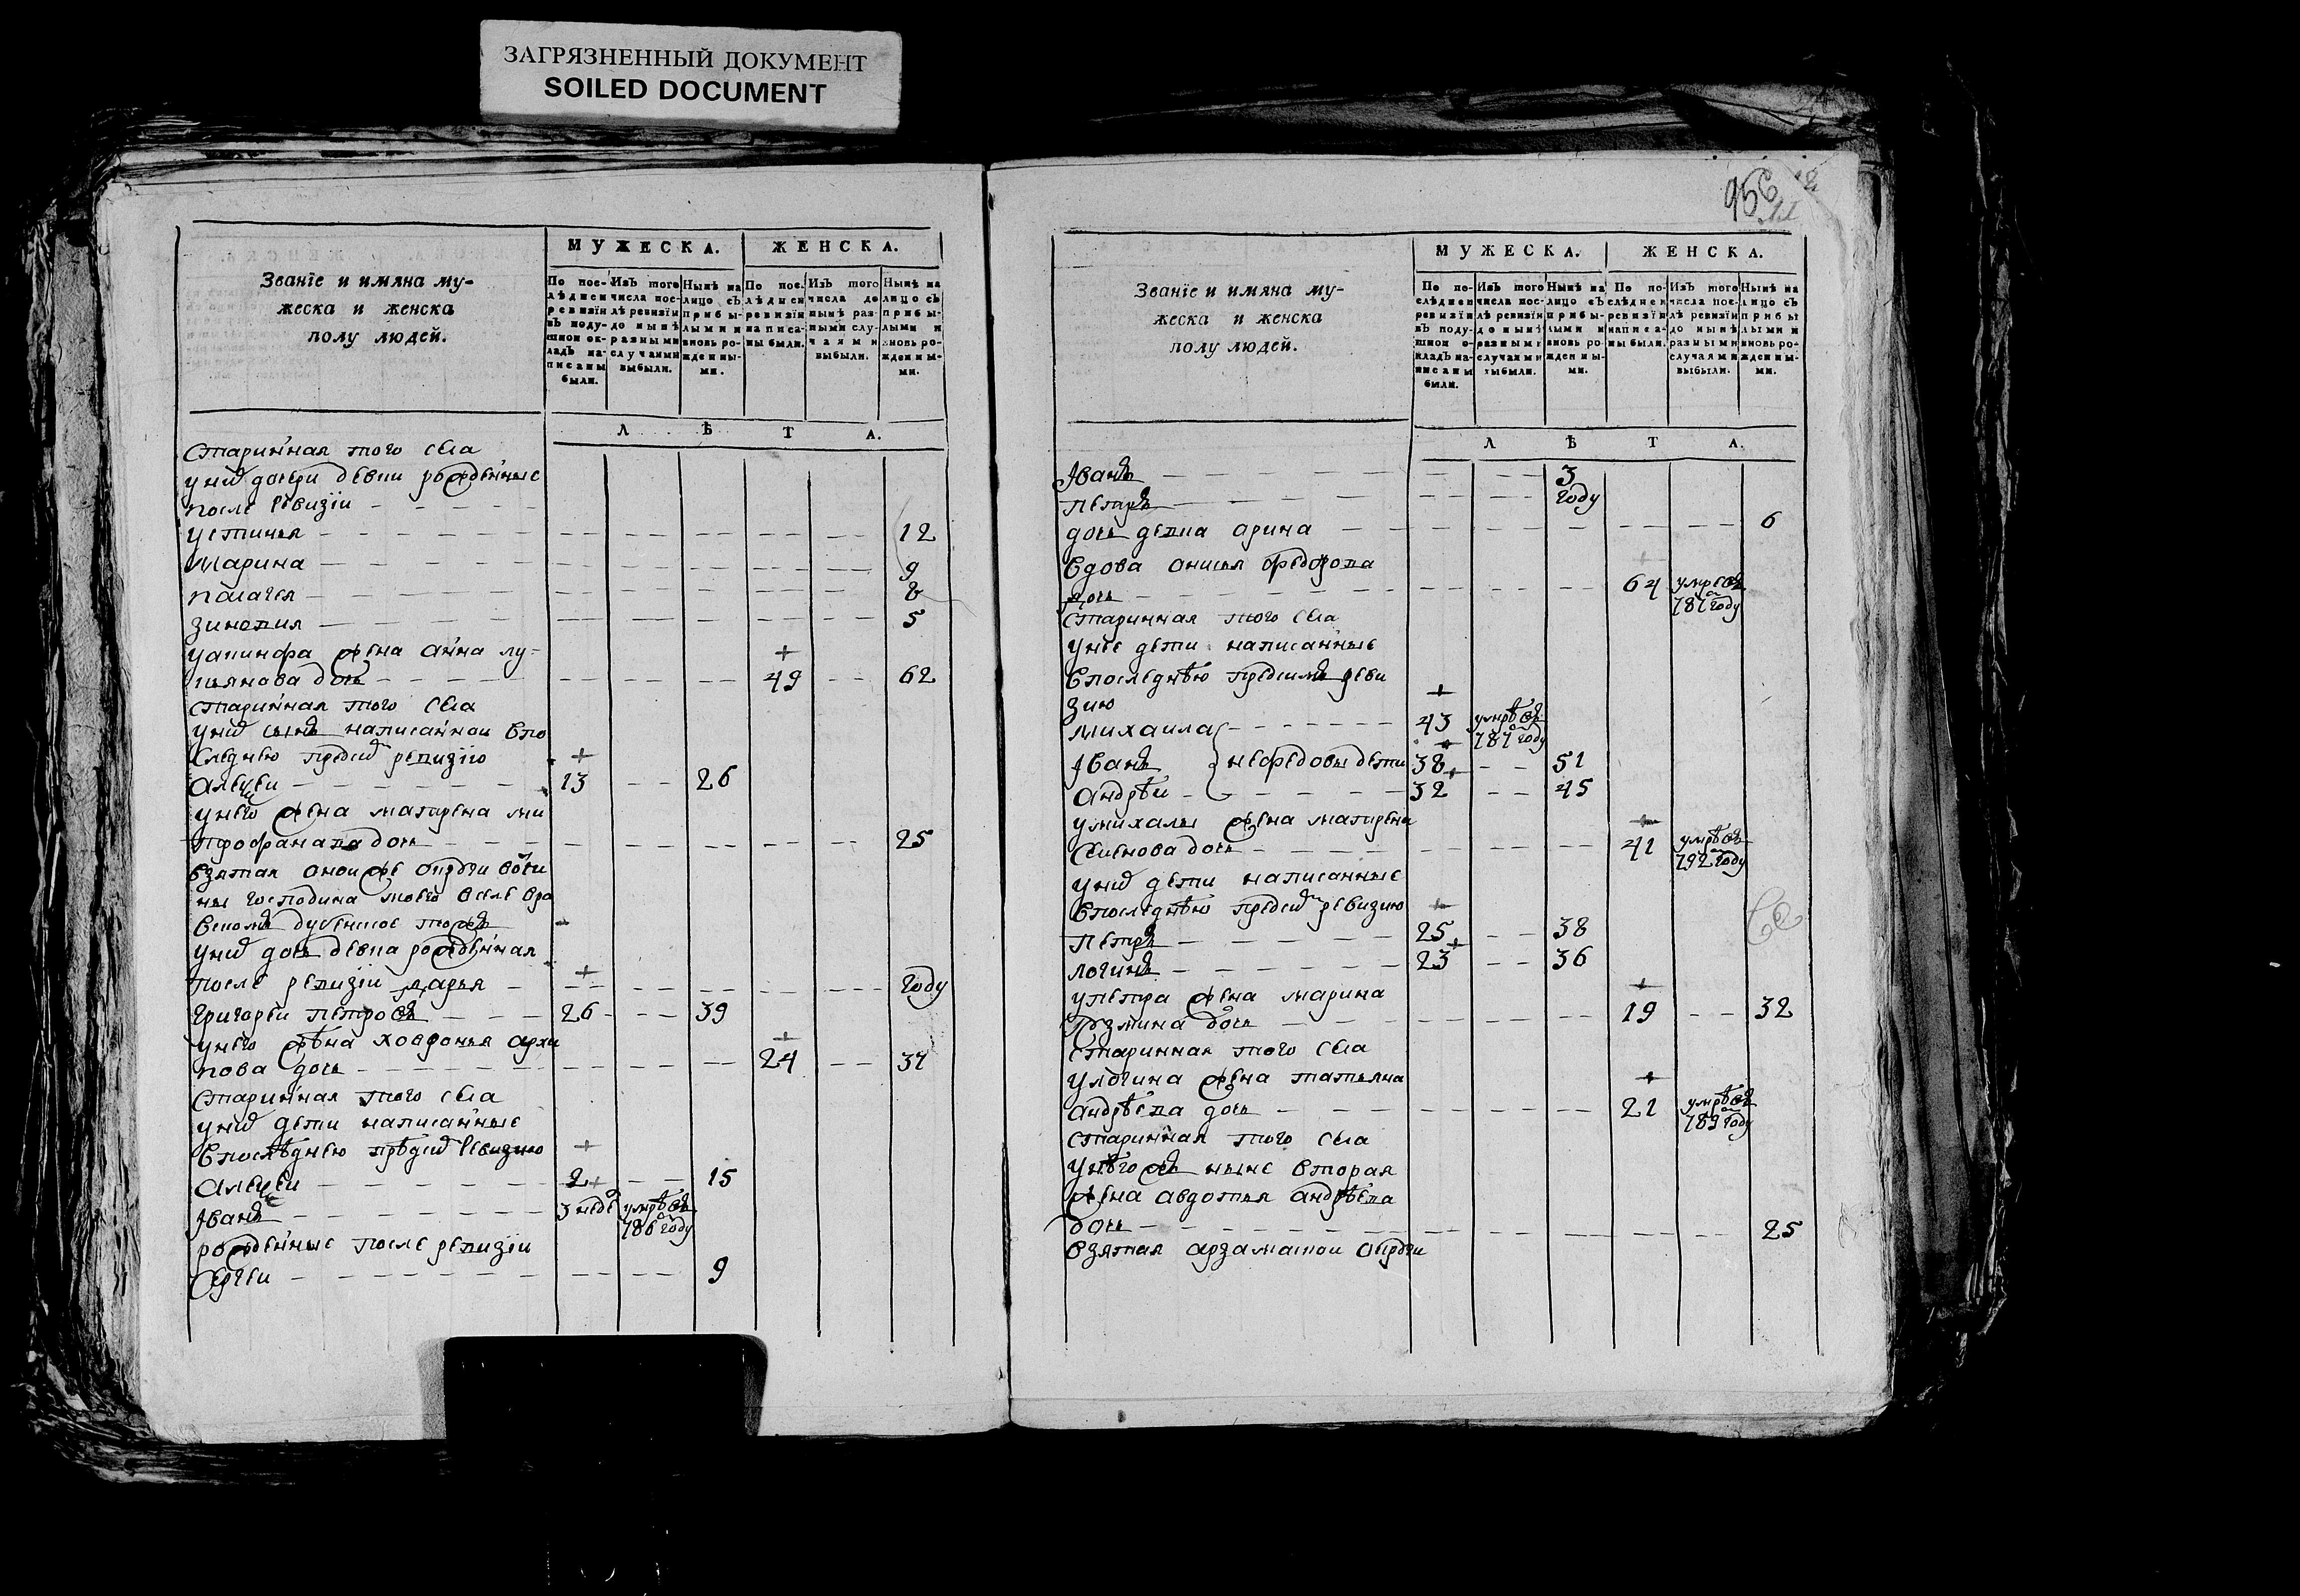 ЗАГРЯЗНЕННЫЙ ДОКУМЕНТ
SOILED DOCUMENT
Званїе и имяна му-
жеска и женска
полу людей.
МУЖЕСКА.
ЖЕНСКА.
По пос-
лѣдней
ревизїи
въ поду-
шной ок-
ладъ на-
писаны
были.
Изъ того
числа пос-
лѣ ревизїи
до нынѣ
разными
случаями
выбыли.
Нынѣ на
лицо съ
прибы-
лыми и
вновь ро-
жденны-
ми.
По пос.
лѣдней
ревизїи
написа-
ны были.
Изъ того
числа до
нынѣ раз-
ными слу-
чаями
выбыли.
Нынѣ на
лицо съ
прибы-
лыми и
вновь ро-
жденны-
ми.
ЛѢТА.
старинная того села
у них дочери девки рожденные
после ревизїи
устинья 12
марина 9
пелагея 8
зиновия 5
у анинфа жена анна лу-
кьянова дочь 49 62
старинная того села
у них сынъ написанной впо
следнею пред сим ревизїю
алексеи 13 26
у него жена матрена ми
трофанова дочь 25
взятая оной же округи вотчи
ны господина моего в селе
у них дочь девка рожденная
после ревизїи дарья году
григореи петровъ 26 39
у него жена ховронья архи
пова дочь 24 37
старинная того села
у них дети написанные
в последнею пред сим ревизию
алексеи 2 15
Iванъ 3 неде умре въ
786 году
рожденные после ревизїи
сергеи 9
956
Званїе и имяна му-
жеска и женска
полу людей.
МУЖЕСКА.
ЖЕНСКА.
По по-
слѣдней
ревизїи
въ поду-
шной о-
кладъ на-
писаны
были.
Изъ того
числа пос-
лѣ ревизїи
до нынѣ
разными
случаями
выбыли.
Нынѣ на
лицо съ
прибы-
лыми и
вновь ро-
жденны-
ми.
По по-
слѣдней
ревизїи
написа-
ны были.
Изъ того
числа пос-
лѣ ревизїи
до нынѣ
разными
случаями
выбыли.
Нынѣ на
лицо съ
прибы-
лыми и
вновь ро-
жденны-
ми.
ЛѢТА.
Iванъ 3
петръ году
дочь девка арина 6
вдова анисья
дочь 64 умре въ
787 году
старинная того села
у нее дети написанные
в последнѣю пред симъ реви
зию
михаила 43 умрѣ въ
787 году
Iванъ нефедовы дети 38 51
андрѣи 32 45
у михалы жена матрена
семенова дочь 41 умрѣ въ
792 году
у них дети написанные
в последнѣю пред сим ревизию
петръ 25 38
логинъ 23 36
у петра жена марина
кузмина дочь 19 32
старинная того села
у логина жена татьяна
андрѣева дочь 21 умрѣ въ
789 году
старинная того села
у него жъ ныне вторая
жена авдотья андрѣева
дочь 25
взятая арзамаской округи